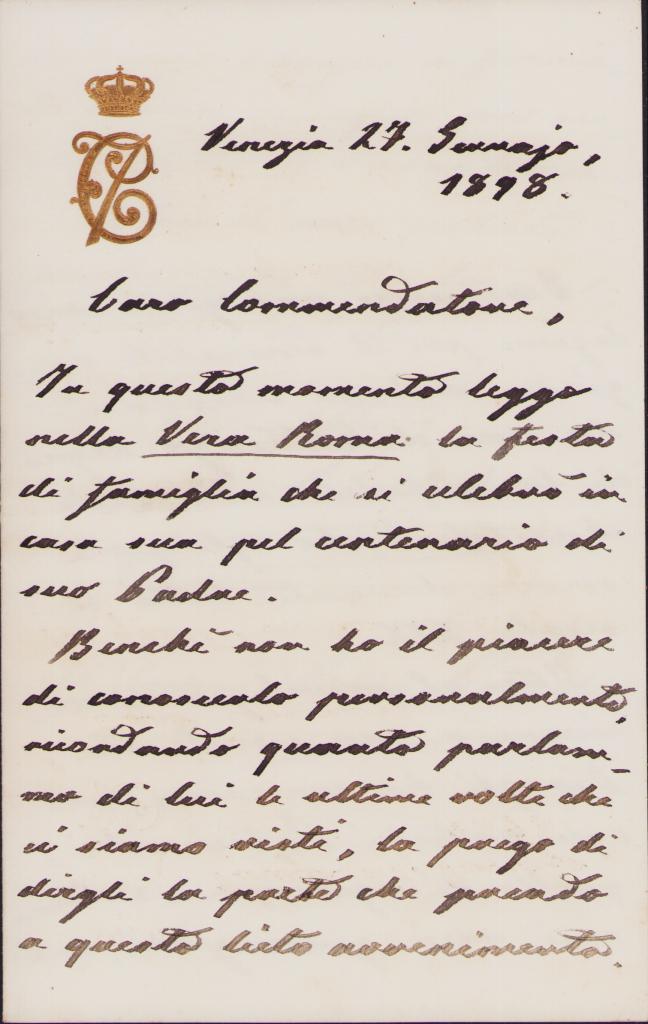 Venezia 27. Gennajo,
1898.
Caro Commendatore,
In questo momento leggo
nella Vera Roma la festa
di famiglia che si celebrò in
casa sua pel centenario di
suo Padre.
Benchè non ho il piacere
di conoscerlo personalmente,
ricordando quanto parlam-
mo di lui le ultime volte che
ci siamo visti, la prego di
dirgli la parte che prendo
a questo lieto avvenimento.